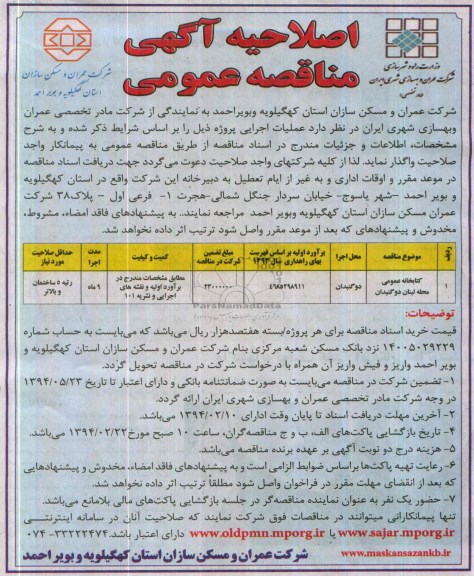 اصلاحیه آگهی
مناقصه عمومی
وزارت راه و شهرسازی
شرکت عمران و بهسازی شهری ایران
شرکت عمران و مسکن سازان
استان کهگیلویه و بویر احمد
شرکت عمران و مسکن سازان استان کهگیلویه وبویراحمد به نمایندگی از شرکت مادر تخصصی عمران
وبهسازی شهری ایران در نظر دارد عملیات اجرایی پروژه ذیل را بر اساس شرایط ذکر شده و به شرح
مشخصات، اطلاعات و جزئیات مندرج در اسناد مناقصه از طریق مناقصه عمومی به پیمانکار واجد
صلاحیت واگذار نماید. لذا از کلیه شرکتهای واجد صلاحیت دعوت می‌گردد جهت دریافت اسناد مناقصه
در موعد مقرر و اوقات اداری و به غیر از ایام تعطیل به دبیرخانه این شرکت واقع در استان کهگیلویه
و بویر احمد –شهر یاسوج- خیابان سردار جنگل شمالی-هجرت ۱- فرعی اول - پلاک۳۸ شرکت
عمران مسکن سازان استان کهگیلویه وبویر احمد مراجعه نمایند. به پیشنهادهای فاقد امضاء، مشروط،
مخدوش و پیشنهادهای که بعد از موعد مقرر واصل شود ترتیب اثر داده نخواهد شد.
ردیف موضوع مناقصه محل اجرا برآورد اولیه بر اساس فهرست بهای راهداری سال ۱۳۹۳ مبلغ تضمین شرکت در مناقصه کمیت و کیفیت مدت اجرا حداقل صلاحیت مورد نیاز
۱ کتابخانه عمومی محله لبنان دوگنبدان دوگنبدان ٤٦٨٥٢٩٨٩١١ ۲۳۰۰۰۰۰۰۰ مطابق مشخصات مندرج در برآورد اولیه و نقشه های اجرایی و نشریه ۱۰۱ ۹ ماه رتبه ۵ ساختمان و بالاتر
ParsNamadData
توضیحات:
قیمت خرید اسناد مناقصه برای هر پروژه/بسته هفتصدهزار ریال می‌باشد که می‌بایست به حساب شماره
۱۴۰۰۵۰۲۹۲۲۹ نزد بانک مسکن شعبه مرکزی بنام شرکت عمران و مسکن سازان استان کهگیلویه و
بویر احمد واریز و فیش واریز آن همراه با درخواست شرکت در مناقصه تحویل گردد.
۱- تضمین شرکت در مناقصه می‌بایست به صورت ضمانتنامه بانکی و دارای اعتبار تا تاریخ ۱۳۹۴/۰۵/۲۳
در وجه شرکت مادر تخصصی عمران و بهسازی شهری ایران ارائه گردد.
۲- آخرین مهلت دریافت اسناد تا پایان وقت اداری ۱۳۹۴/۰۲/۱۰ می باشد.
۴- تاریخ بازگشایی پاکت‌های الف، ب و ج مناقصه‌گران، ساعت ۱۰ صبح مورخ۱۳۹۴/۰۲/۲۲ می‌باشد.
۵- هزینه درج دو نوبت آگهی بر عهده برنده مناقصه می‌باشد.
۶- رعایت تهیه پاکت‌ها براساس ضوابط الزامی است و به پیشنهادهای فاقد امضاء، مخدوش و پیشنهادهایی
که بعد از انقضای مهلت مقرر در فراخوان واصل شود مطلقا ترتیب اثر داده نخواهد شد.
۷- حضور یک نفر به عنوان نماینده مناقصه‌گر در جلسه بازگشایی پاکت‌های مالی بلامانع می‌باشد.
تنها پیمانکارانی میتوانند در مناقصات فوق شرکت نمایند که صلاحیت آنان در سامانه اینترنتی
www.sajar.mporg.ir یا www.oldpmn.mporg.ir دارای اعتبار باشد. ۳۳۲۲۲۴۷۴-۰۷۴
www.maskansazankb.ir شرکت عمران و مسکن سازان استان کهگیلویه و بویر احمد